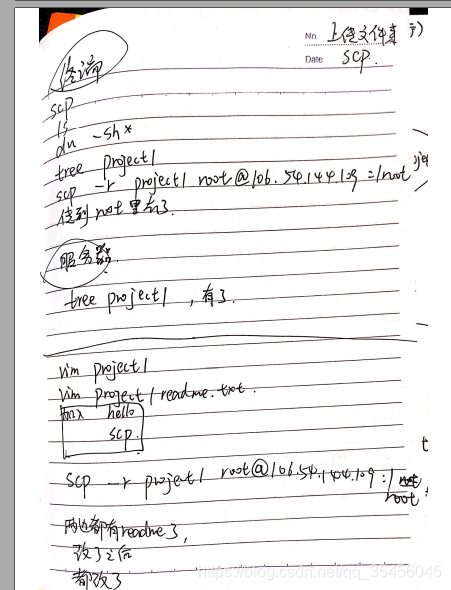 No. 上传文件夹
Date SCP.
终端
scp
ls
du -sh*
tree project1
scp -r project1 root@106.54.144.109:/root
传到root里去了.
服务器
tree project1 ,有了.
vim project1
vim project1readme.txt.
加入 hello
scp.
scp -r project1 root@106.54.144.109:/
root
两边都有readme了,
改了之后
都改了
https://blog.csdn.net/qq_35456045